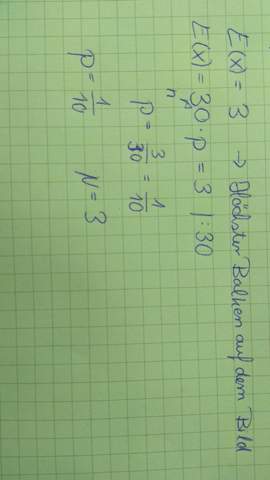 E(x) = 3 → Höchster Balken auf dem Bild
E(x) = 30 · p = 3 | : 30
n
p = 3/30 = 1/10
p = 1/10 μ = 3